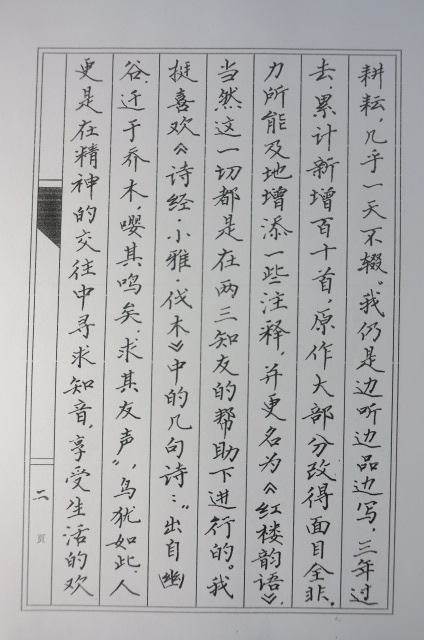 耕耘，几乎一天不辍。我仍是边听边品边写，三年过
去，累计新增百十首，原作大部分改得面目全非。
力所能及地增添一些注释，并更名为《红楼韵语》。
当然这一切都是在两三知友的帮助下进行的。我
挺喜欢《诗经·小雅·伐木》中的几句诗：“出自幽
谷，迁于乔木，嘤其鸣矣，求其友声”，鸟犹如此，人
更是在精神的交往中寻求知音，享受生活的欢
二页